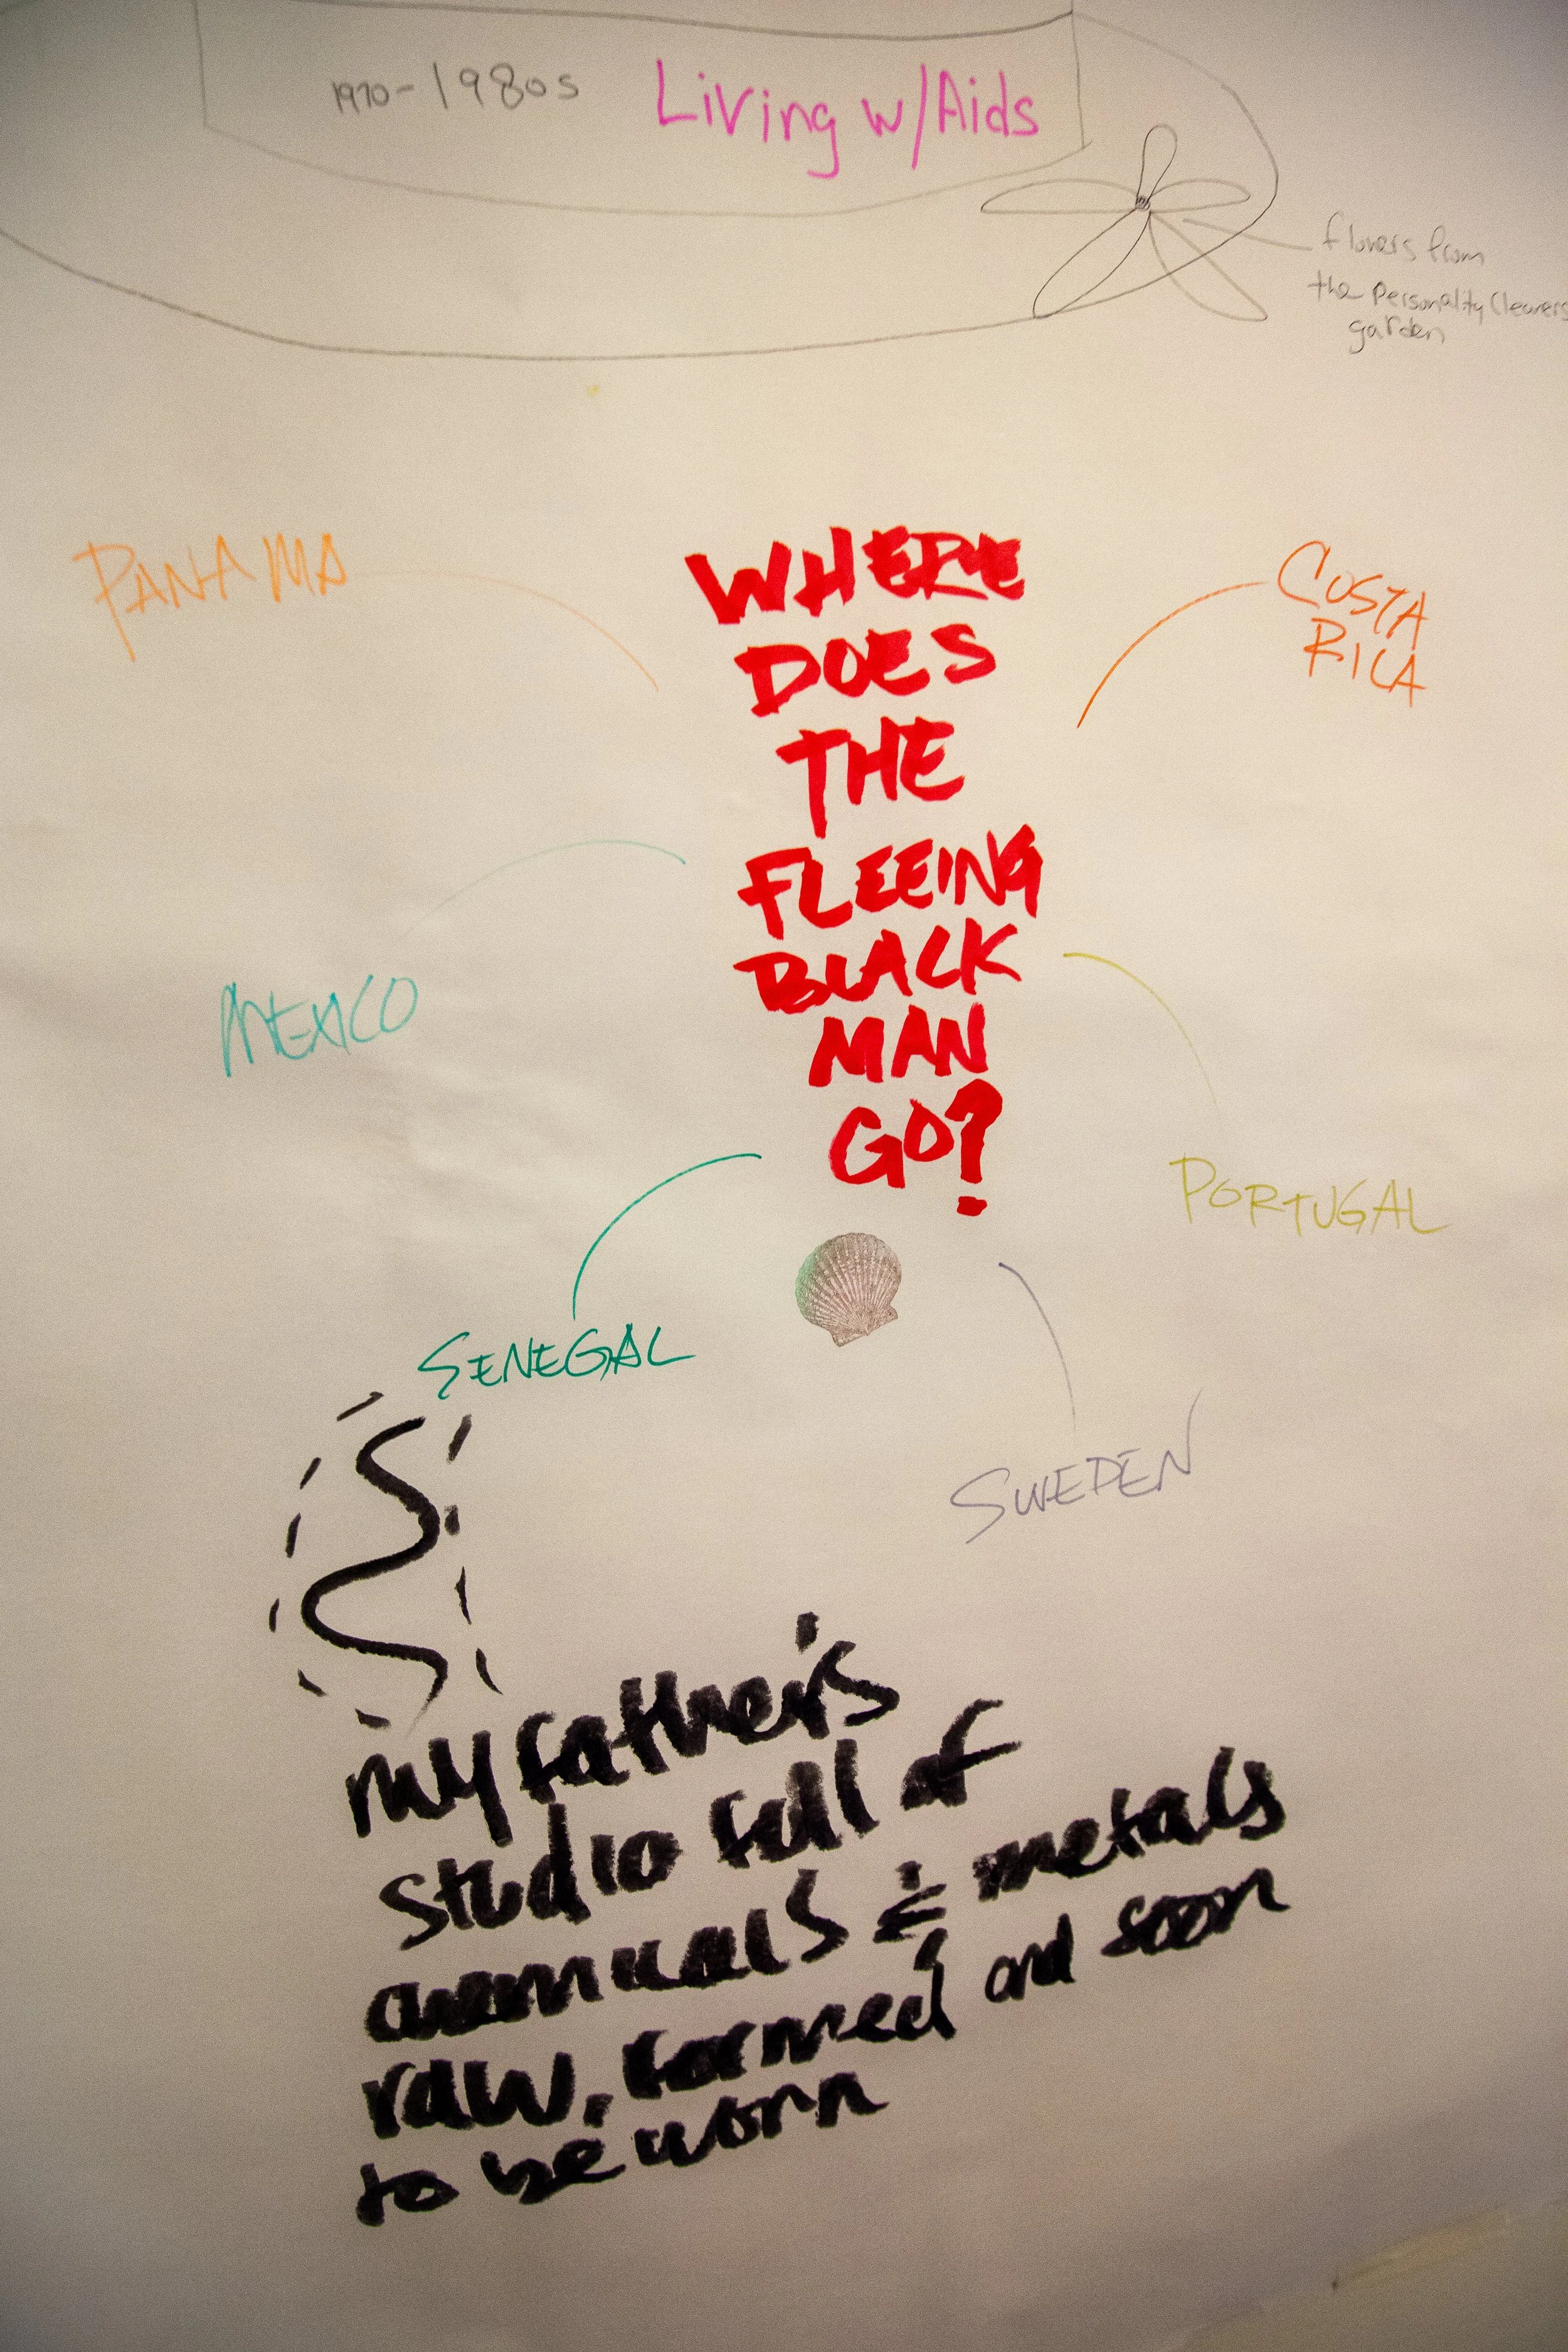 1970-1980s Living w/Aids
flowers from
the Personality Cleaners
garden
PANAMA
COSTA
RICA
WHERE
DOES
THE
FLEEING
BLACK
MAN
GO?
MEXICO
PORTUGAL
SENEGAL
SWEDEN
my father's
studio full of
chemicals & metals
raw, formed and soon
to be worn